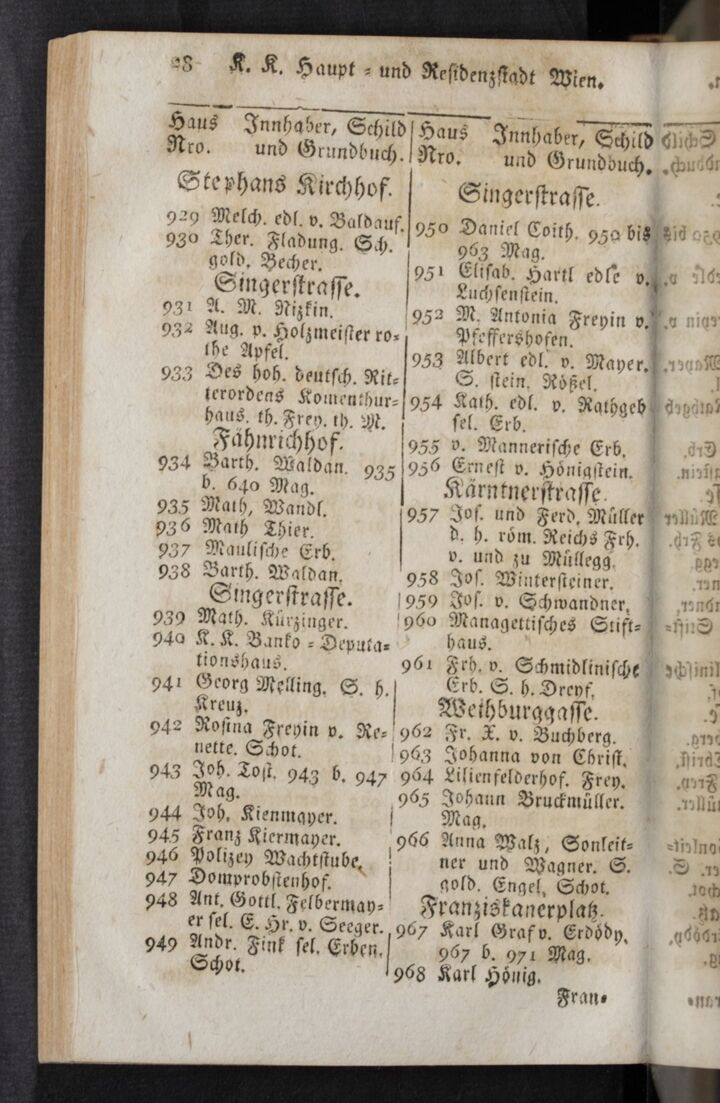 28 K. K. Haupt- und Residenzstadt Wien.
Haus Innhaber, Schild
Nro. und Grundbuch.
Stephans Kirchhof.
929 Melch. edl. v. Baldauf.
930 Ther. Fladung. Sch.
gold. Becher.
Singerstrasse.
931 A. M. Nizkin.
932 Aug. v. Holzmeister ro-
the Apfel.
933 Des hoh. deutsch. Rit-
terordens Komenthur-
haus. th. Frey. th. M.
Fähnrichhof.
934 Barth. Waldan. 935
b. 640 Mag.
935 Math, Wandl.
936 Math Thier.
937 Maulische Erb.
938 Barth. Waldan.
Singerstrasse.
939 Math. Kürzinger.
940 K. K. Banko-Deputa-
tionshaus.
941 Georg Melling. S. h.
Kreuz.
942 Rosina Freyin v. Re-
nette. Schot.
943 Joh. Tost. 943 b. 947
Mag.
944 Joh. Kienmayer.
945 Franz Kiermayer.
946 Polizey Wachtstube.
947 Domprobstenhof.
948 Ant. Gottl. Felbermay-
er sel. E. Hr. v. Seeger.
949 Andr. Fink sel. Erben.
Schot.
Haus Innhaber, Schild
Nro. und Grundbuch.
Singerstrasse.
950 Daniel Coith. 950 bis
963 Mag.
951 Elisab. Hartl edle v.
Luchsenstein.
952 M. Antonia Freyin v.
Pfeffershofen.
953 Albert edl. v. Mayer.
S. stein. Rößel.
954 Kath. edl. v. Rathgeb
sel. Erb.
955 v. Mannerische Erb.
956 Ernest v. Hönigstein.
Kärntnerstrasse.
957 Jos. und Ferd. Müller
d. h. röm. Reichs Frh.
v. und zu Müllegg.
958 Jos. Wintersteiner.
959 Jos. v. Schwandner.
960 Managettisches Stift-
haus.
961 Frh. v. Schmidlinische
Erb. S. h. Dreyf.
Weihburggasse.
962 Fr. X. v. Buchberg.
963 Johanna von Christ.
964 Lilienfelderhof. Frey.
965 Johann Bruckmüller.
Mag.
966 Anna Walz, Sonleit-
ner und Wagner. S.
gold. Engel, Schot.
Franziskanerplatz.
967 Karl Graf v. Erdödy.
967 b. 971 Mag.
968 Karl Hönig.
Fran-